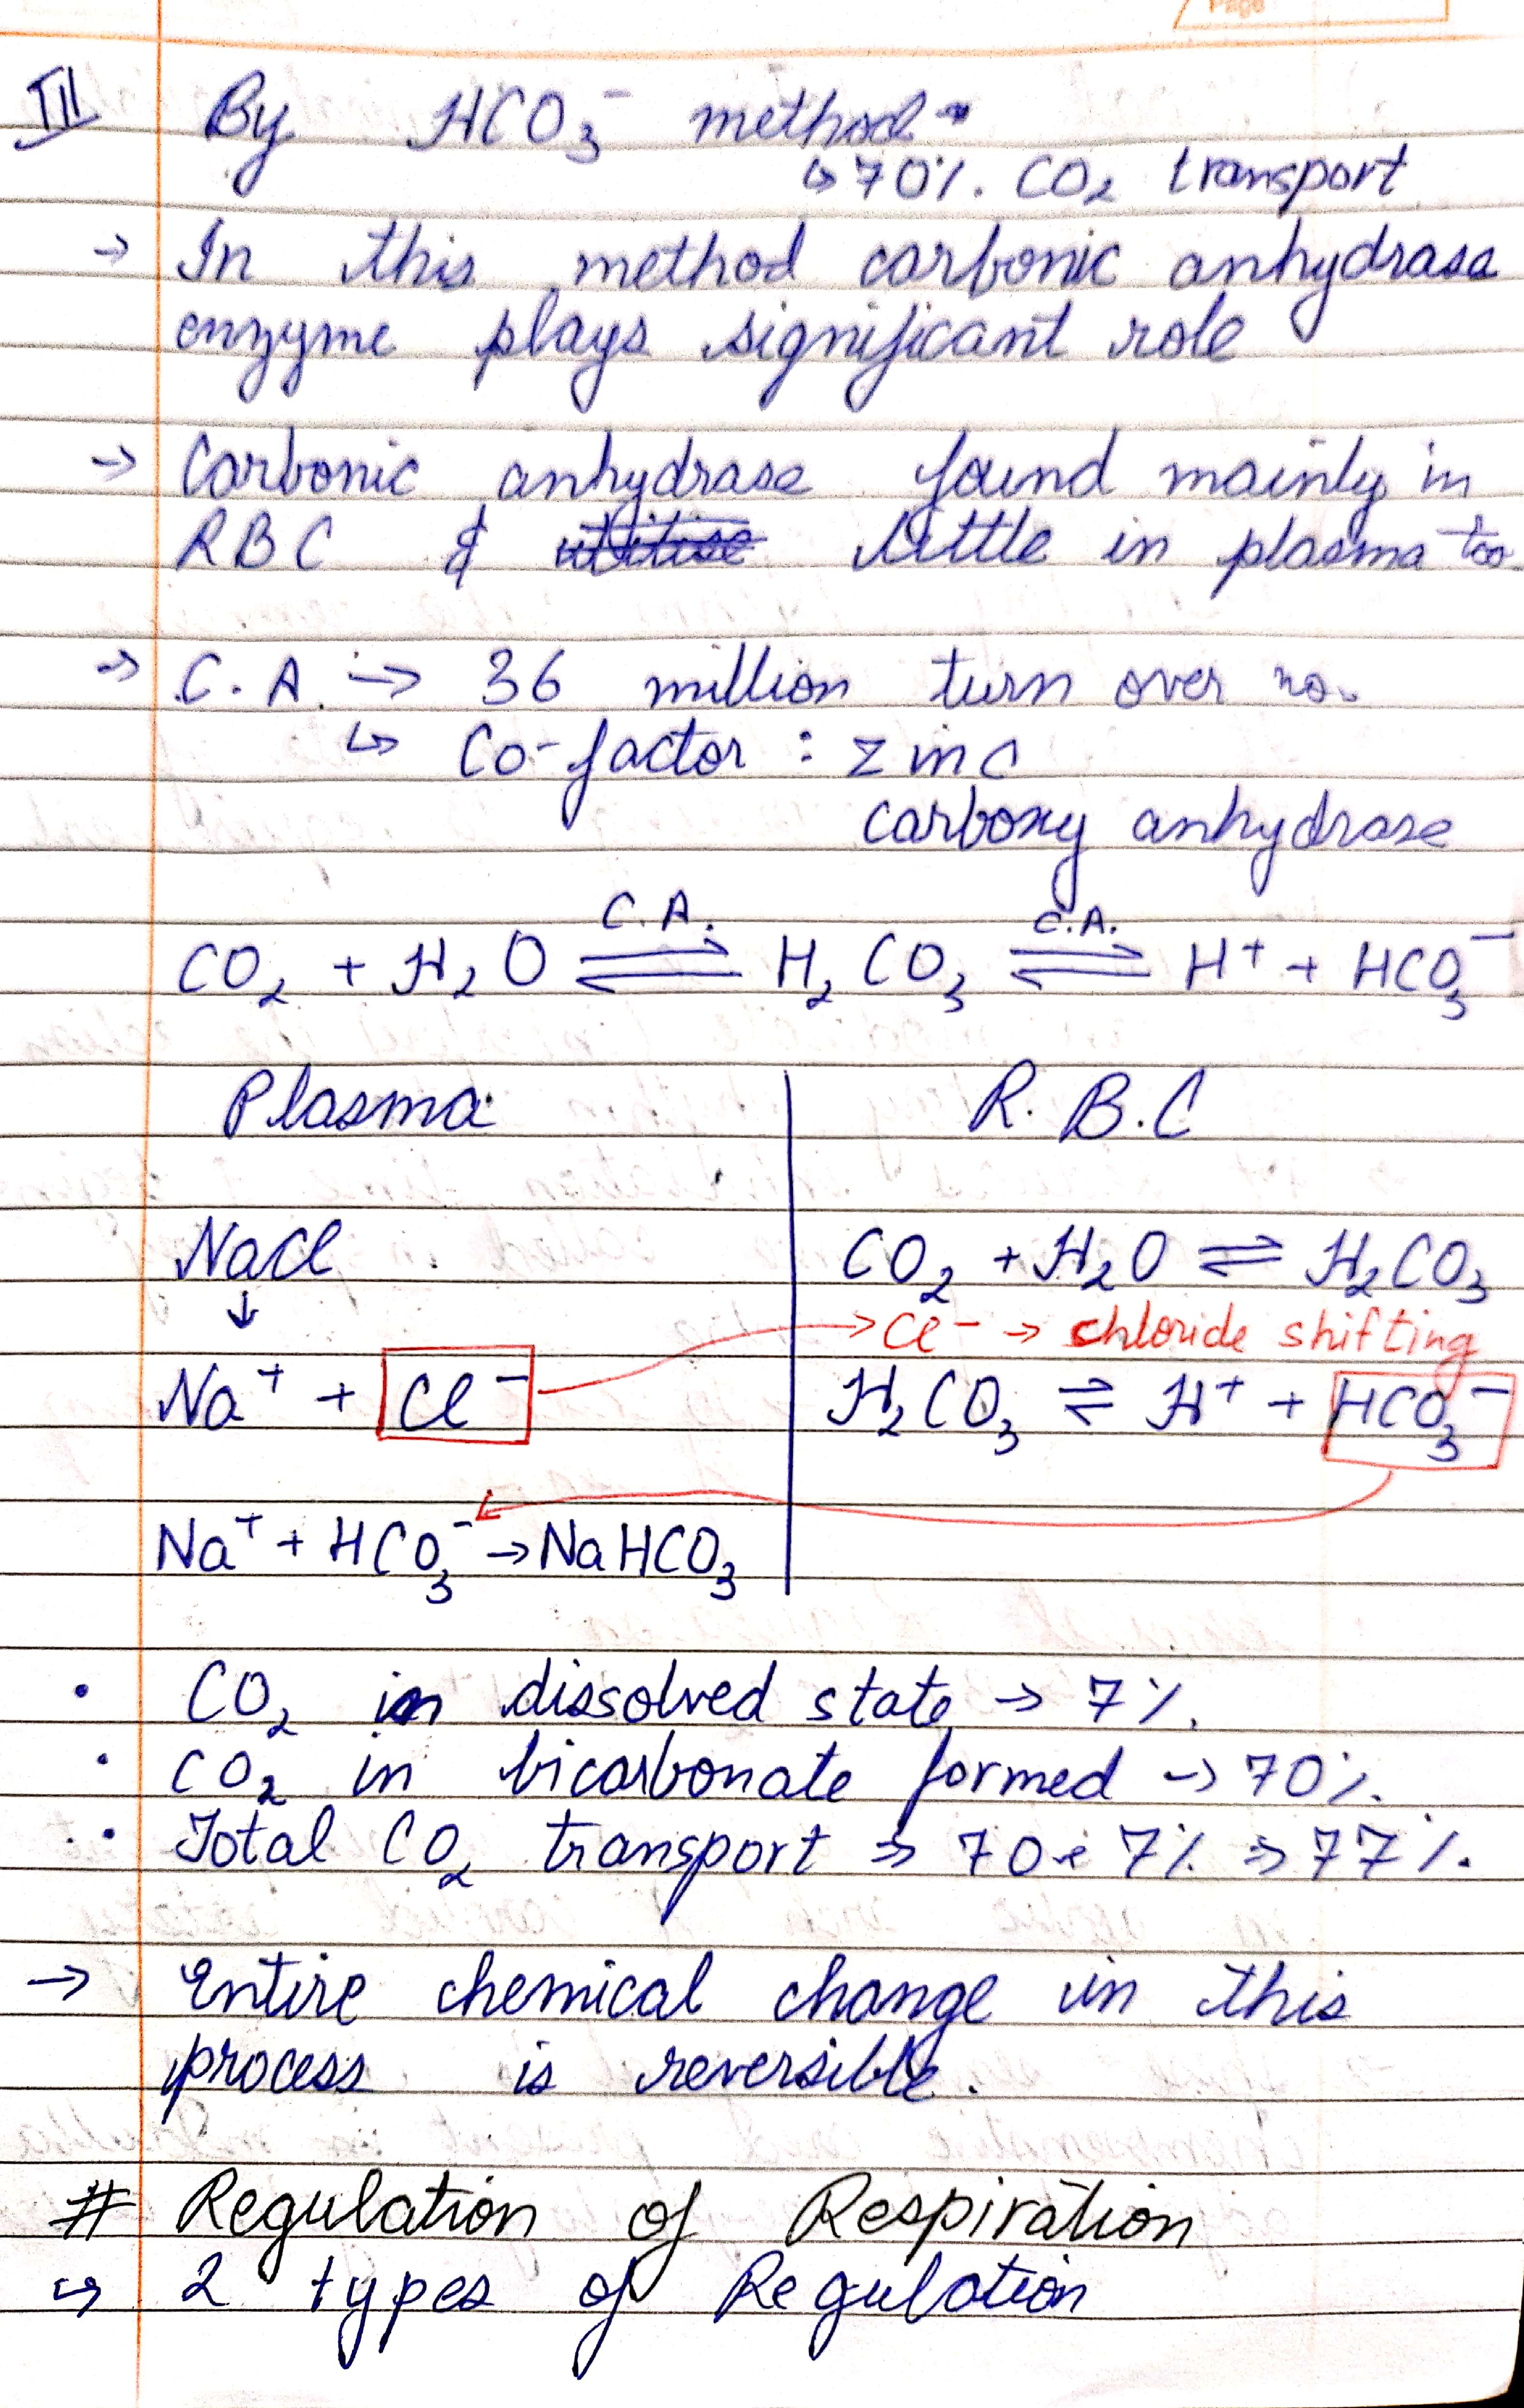 Page
III By HCO₃⁻ method
↳ 70%. CO₂ transport
→ In this method carbonic anhydrase
enzyme plays significant role
→ Carbonic anhydrase found mainly in
RBC & little in plasma too.
→ C.A. → 36 million turn over no.
↳ Co-factor : zinc
carboxy anhydrase
CO₂ + H₂O ⇌ (C.A.) H₂CO₃ ⇌ (C.A.) H⁺ + HCO₃⁻
Plasma R.B.C
NaCl CO₂ + H₂O ⇌ H₂CO₃
↓ → Cl⁻ → chloride shifting
Na⁺ + Cl⁻ H₂CO₃ ⇌ H⁺ + HCO₃⁻
Na⁺ + HCO₃⁻ → NaHCO₃
• CO₂ in dissolved state → 7%.
• CO₂ in bicarbonate formed → 70%.
∴ Total CO₂ transport ⇒ 70 + 7% ⇒ 77%.
→ Entire chemical change in this
process is reversible.
# Regulation of Respiration
↳ 2 types of Regulation